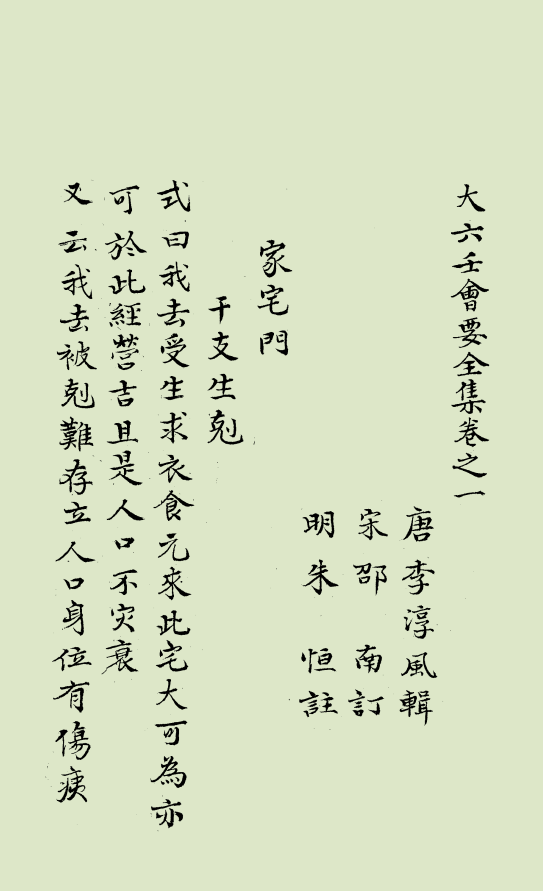 大六壬會要全集卷之一
唐李淳風輯
宋邵南訂
明朱恒註
家宅門
干支生剋
式曰我去受生求衣食元來此宅大可為亦
可於此經營吉且是人口不灾衰
又云我去被剋難存立人口身位有傷痍